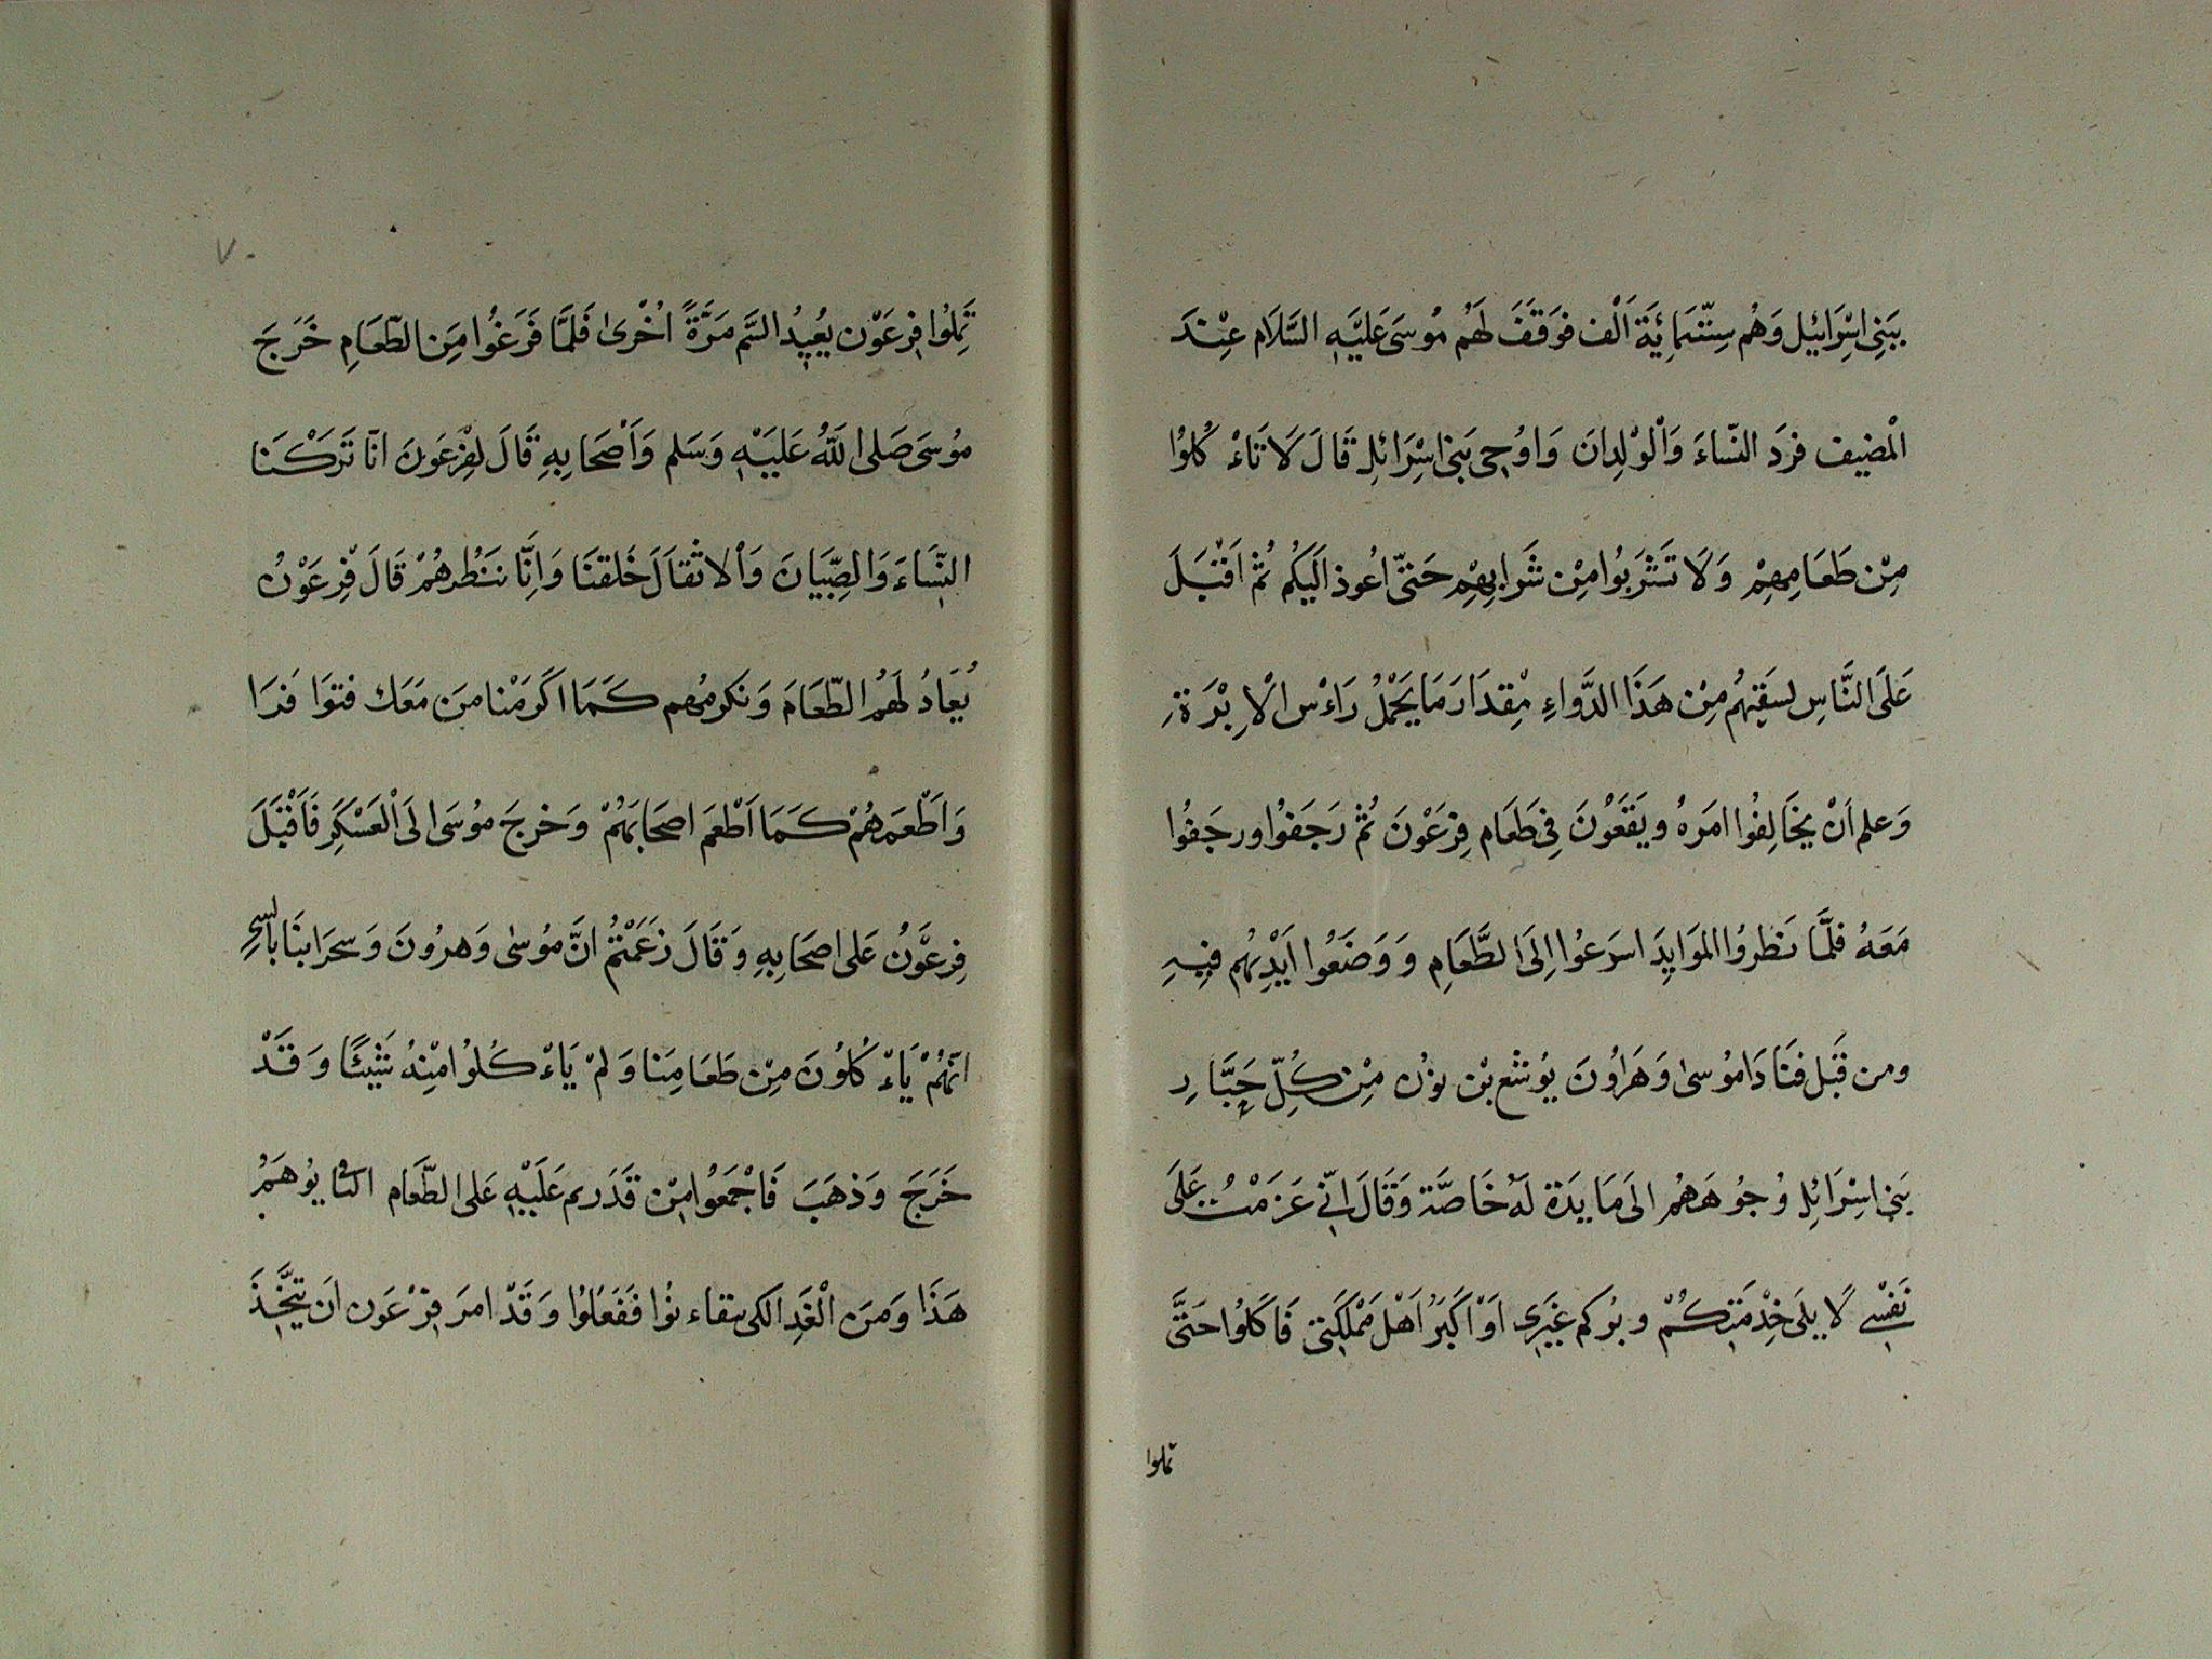 بِبَنِى اسْرَائيل وَهُم سِتّمَائَةَ اَلْف فوَقَفَ لَهُم مُوسَى عَليَهِ السَّلاَم عِنْدَ
الْمضيف فردَ النّساءَ وَالْوْلدانَ وَاوْحى بَنى اسْرَائل قَالَ لَا تَاءْ كُلوُا
مِنْ طَعَامِهِمْ وَلَا تَشْرَبُوا مِنْ شَرابِهِمْ حَتىّ اعُوذ الَيكُم ثُمْ اَقْبَلَ
عَلَى النَّاسِ لسقيَهُم مِنْ هَذَا الدَّواءِ مْقِدَارَ مَا يَحْمْلُ رَاءْس الْاِبْرَةِ
وَعلم اَنْ يخَالِفُوا امَرهُ ويَقَعُوْنَ فِى طَعَام فِرْعَوْنَ ثُمْ رَجَفوُا ورجَفُوا
مَعَهُ فلَمَّا نَظروُا الموَايِدَ اسرَعوُا اِلَى الطَّعَامِ وَوَضَعُوا اَيْدِيَهُم فيهِ
ومن قَبْل فنَادَا مُوسى وَهَرُاونَ يوُشْع بْن نوُن مِنْ كُلِّ جَبَّارِ
بَنى اسْرَائل وُجوُهَهُم الَى مَا يدَة لَهُ خَاصَّة وَقَالَ انِّى عَزَمْتُ عَلَى
نَفْسِى لَا يلَى خِدْمَتِكُمْ وبرُكم غَيَرِى اَوْ اَكَبَرُ اَهْل مَمْلَكَتِى فَا كَلوُا حَتَّى
تملوا
تَمِلوُا فِرعَوْن يعُيدُ السَّم مَرَّةً اُخْرىٰ فَلمَّا فَرَغُوا مِنَ الطّعَامِ خَرَجَ
مُوسَى صَلى اللهُ عَليَهِ وَسَلم وَاَصْحَابهِ قَالَ لفِرْعَونَ انّا تَرَكْنَا
النِّسَاءَ وَالصِبْيَانَ وَالاثْقَالَ خَلقنَا وَاِنَّا ننَنْظُرهُمْ قَالَ فِرعَوْنُ
يُعَادُ لَهُم الطّعَامَ وَنكرمُهم كَمَا اكَرمَنْا مِنَ مَعَك فتوَا فرَا
وَاَطْعَمَهُمْ كَمَا اَطْعَمَ اصحَابهَمُ وَخرجَ موُسَى الَى الْعَسْكَرِ فَاَقْبَلَ
فِرعَوْنُ عَلى اصحَابهِ وَقَالَ زعَمَتْمُ انَّ مُوسى وَهرُونَ وَسحرَابنَا بالسحِر
انّهُمْ يَاءْ كُلوُنَ مِنْ طَعَامِنَا وَلمْ يَاءْ كُلوُا مِنْهُ شَيْئًا وَقَدْ
خَرَجَ وَذهَبَ فَاجْمَعُوا مِنْ قَدَرتم عَلَيْهِ عَلى الطّعَام يوُهَمُ
هَذَا وَمِنَ الْغَدِ الكى فَفَعَلوُا وَقَدْ امرَ فِرْعَون اَن يتَّخِذَ